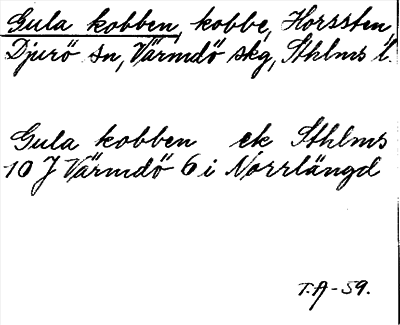 Gula kobben, kobbe, Horssten,
Djurö sn, Värmdö skg, Sthlms l.
Gula kobben ek Sthlms
10 J Värmdö 6 i Norrlängd
T.A-59.